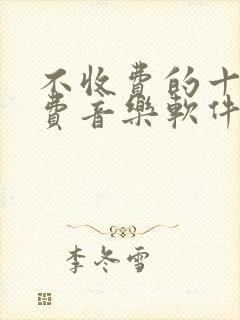 不收費的十
費音樂軟件
李冬雪